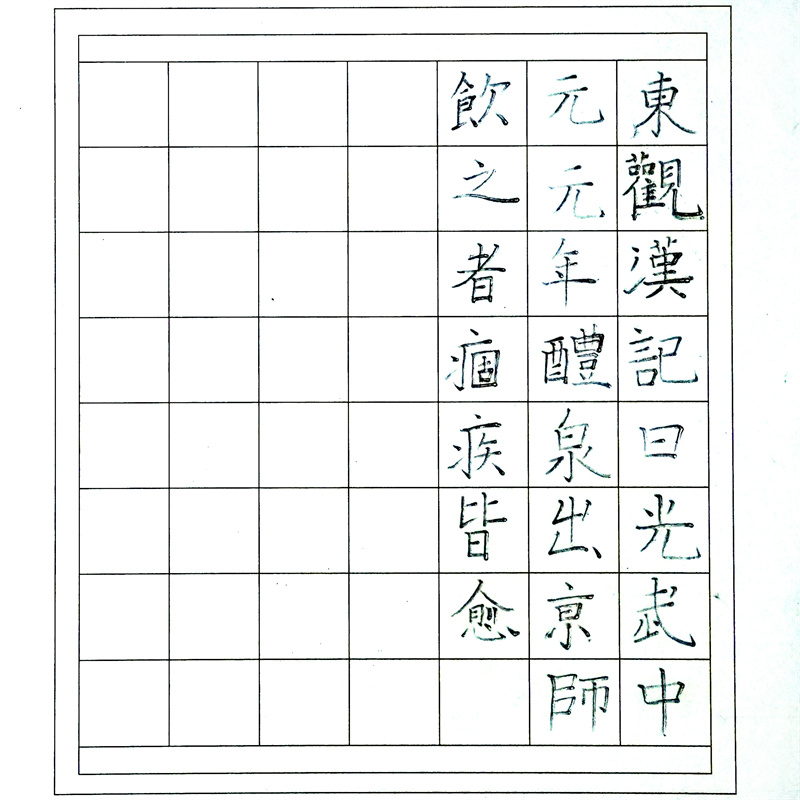 東觀漢記曰光武中
元元年醴泉出京師
飲之者痼疾皆愈